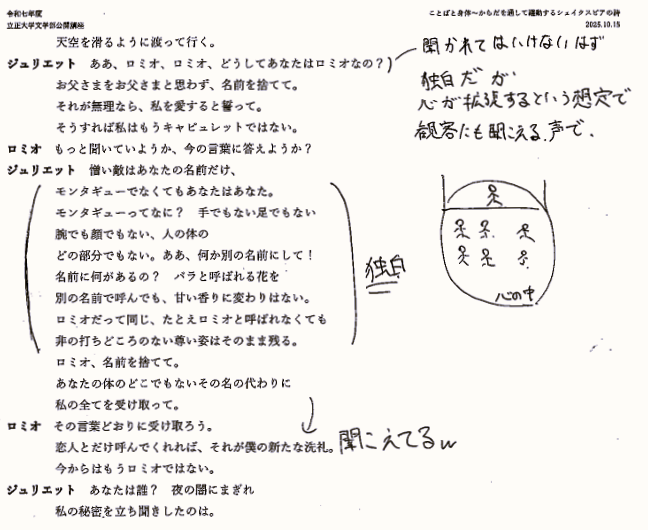 令和七年度
立正大学文学部公開講座
ことばと身体〜からだを通して躍動するシェイクスピアの詩
2025.10.15
天空を滑るように渡って行く。
ジュリエット　ああ、ロミオ、ロミオ、どうしてあなたはロミオなの？
お父さまをお父さまと思わず、名前を捨てて。
それが無理なら、私を愛すると誓って。
そうすれば私はもうキャピュレットではない。
ロミオ　もっと聞いていようか、今の言葉に答えようか？
ジュリエット　憎い敵はあなたの名前だけ、
モンタギューでなくてもあなたはあなた。
モンタギューってなに？　手でもない足でもない
腕でも顔でもない、人の体の
どの部分でもない。ああ、何か別の名前にして！
名前に何があるの？　バラと呼ばれる花を
別の名前で呼んでも、甘い香りに変わりはない。
ロミオだって同じ、たとえロミオと呼ばれなくても
非の打ちどころのない尊い姿はそのまま残る。
ロミオ、名前を捨てて。
あなたの体のどこでもないその名の代わりに
私の全てを受け取って。
ロミオ　その言葉どおりに受け取ろう。
恋人とだけ呼んでくれれば、それが僕の新たな洗礼。
今からはもうロミオではない。
ジュリエット　あなたは誰？　夜の闇にまぎれ
私の秘密を立ち聞きしたのは。
聞かれてはいけないはず
独白だが
心が拡張するという想定で
観客にも聞こえる声で、
心の中
独白
聞こえてるw